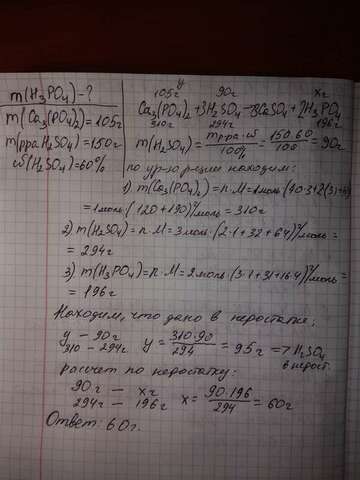 m(H₃PO₄) - ?
m(Ca₃(PO₄)₂) = 105г
m(рра H₂SO₄) = 150г
ω(H₂SO₄) = 60%
105г y 90г xг
Ca₃(PO₄)₂ + 3H₂SO₄ → 3CaSO₄ + 2H₃PO₄
310г 294г 196г
m(H₂SO₄) = mр-ра·ω/100% = 150·60/100 = 90г
по ур-ю реакц находим:
1) m(Ca₃(PO₄)₂) = n·M = 1моль·(40·3+2(31+
= 1моль·(120+190)г/моль = 310г
2) m(H₂SO₄) = n·M = 3моль·(2·1+32+64)г/моль =
= 294г
3) m(H₃PO₄) = n·M = 2моль·(3·1+31+16·4)г/моль =
= 196г
Находим, что дано в недостатке;
y – 90г
310 – 294г y = 310·90/294 = 95г => H₂SO₄
в недост.
расчет по недостатку:
90г — xг
294г — 196г x = 90·196/294 = 60г
Ответ: 60г.